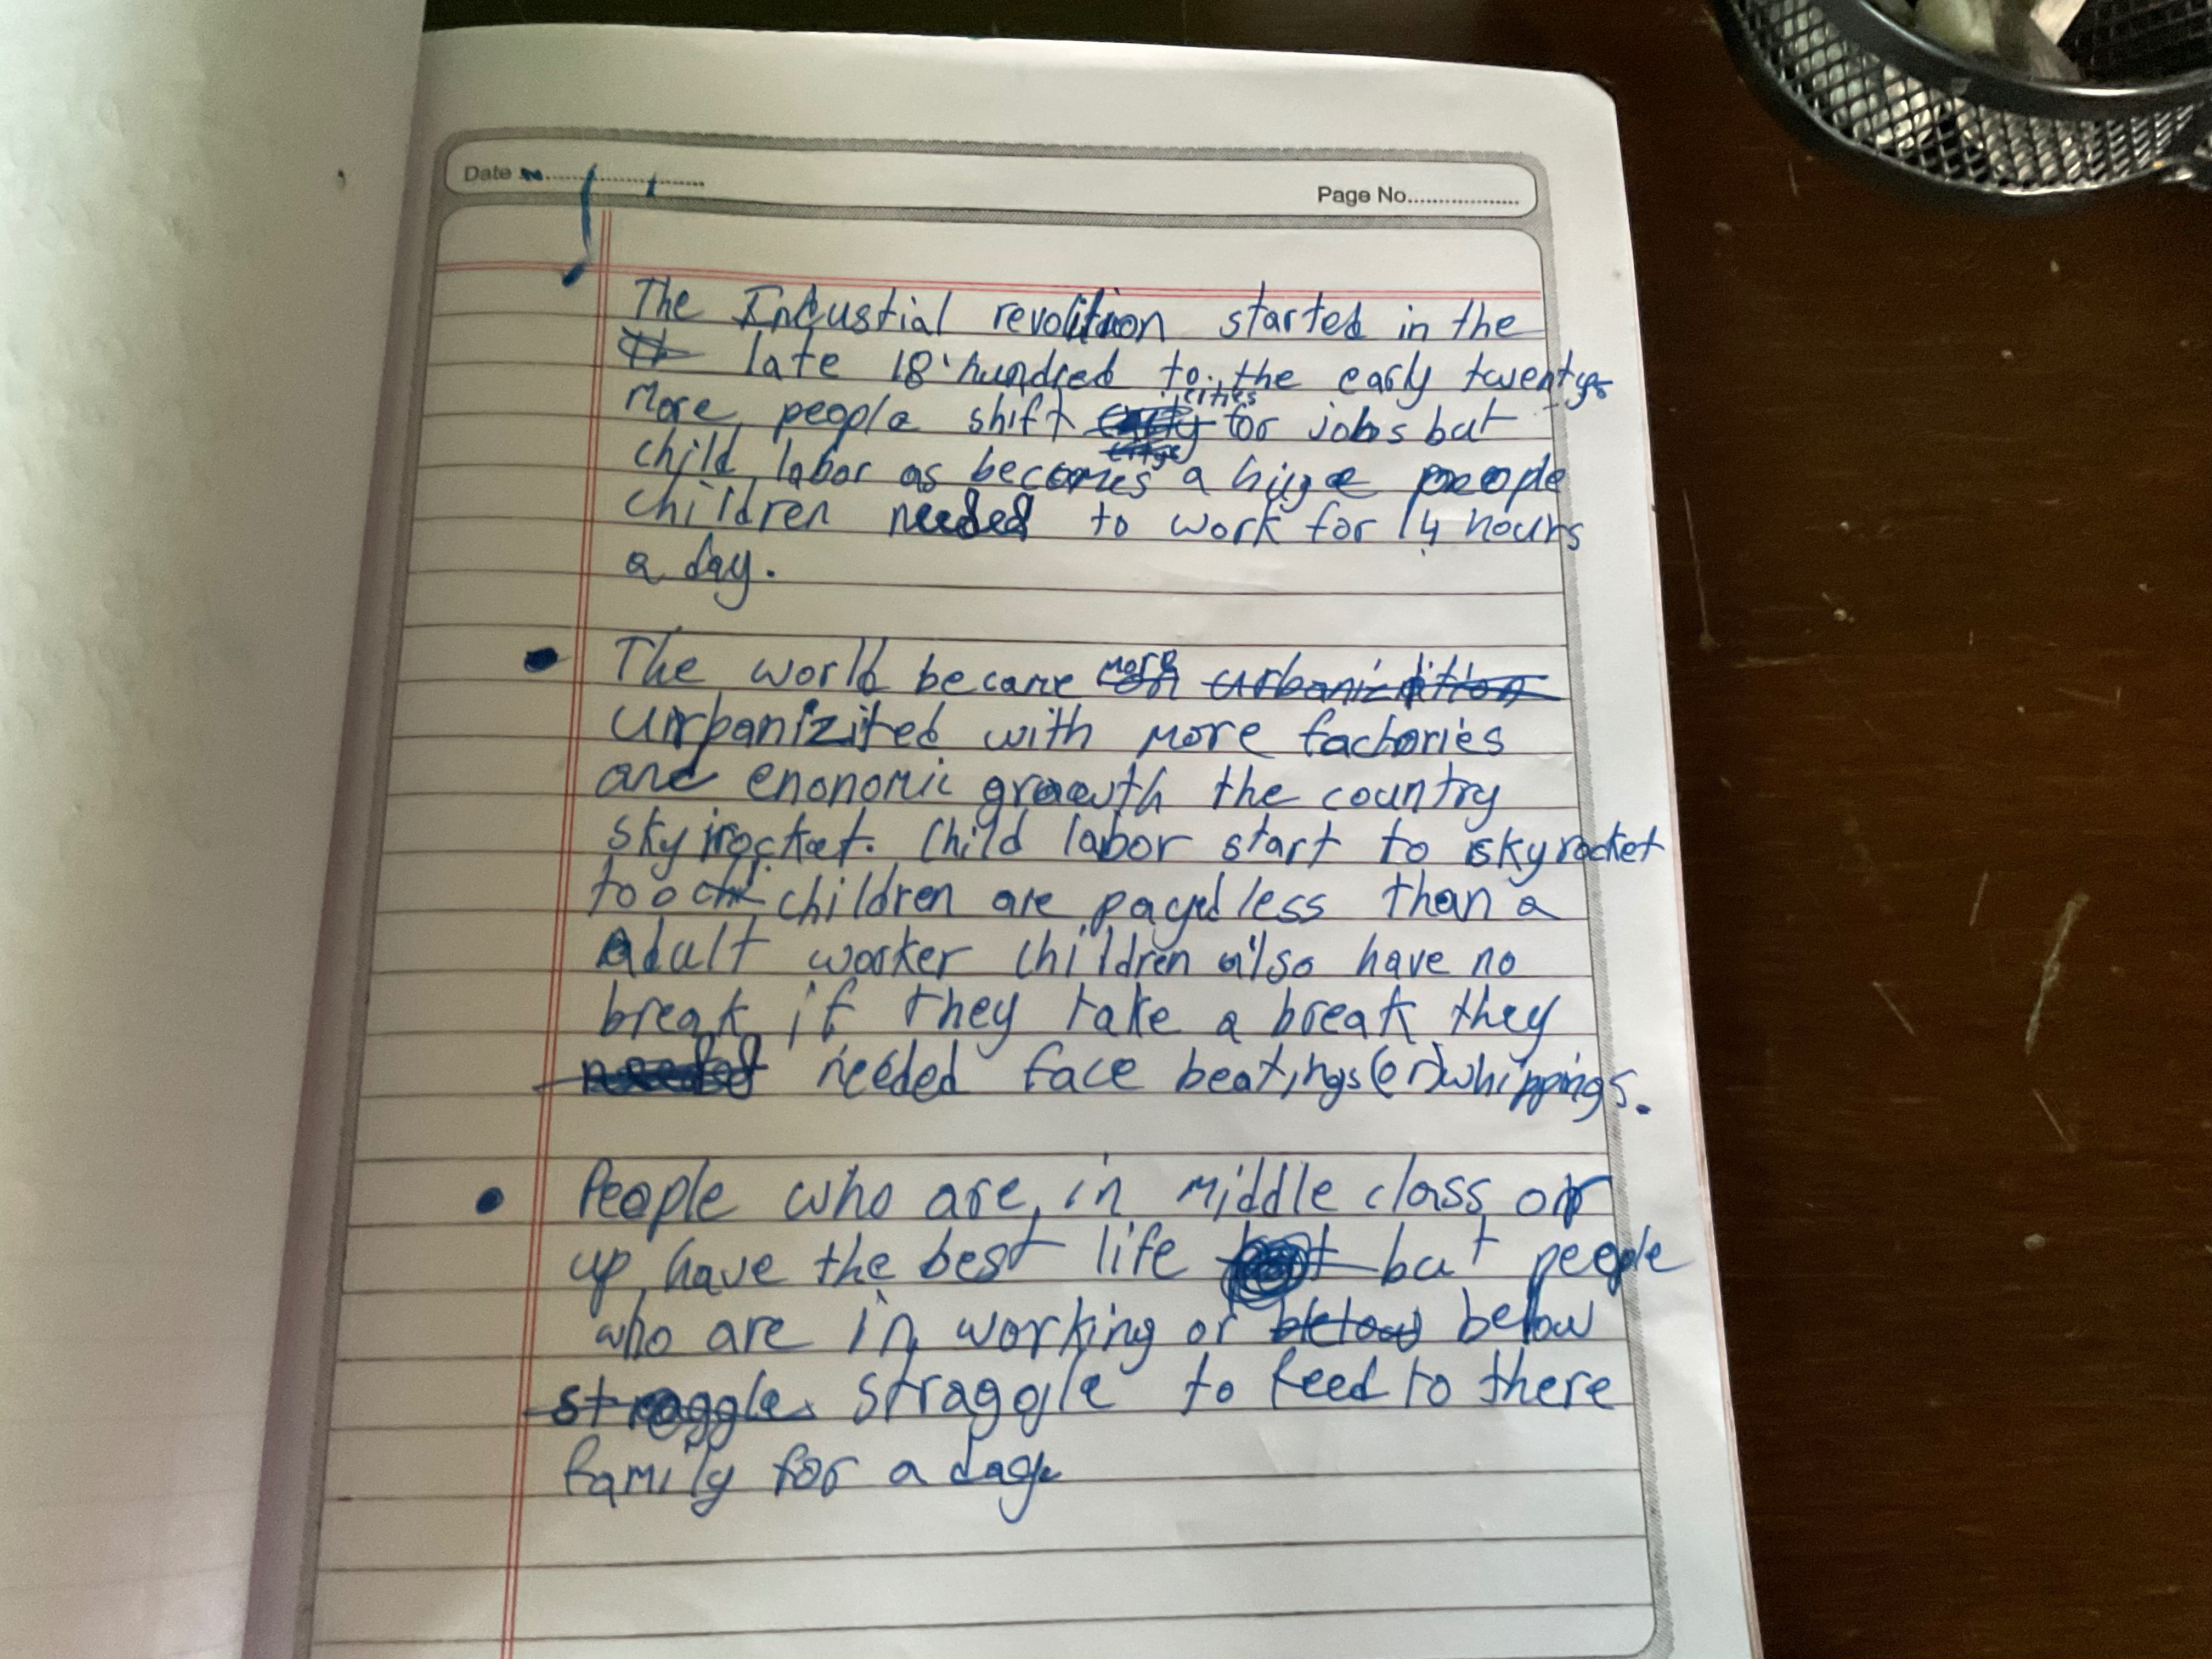 Date
Page No.
The Industial revolition started in the
late 18 hundred to the early twentys
cities
More people shift for jobs but
child labor as becomes a huge people
children needed to work for 14 hours
a day.
The world became more urbanizition
urbanizited with more factories
and enonomic growth the country
skyrocket. Child labor start to skyrocket
too chil children are payed less than a
Adult worker children also have no
break if they take a break they
needed needed face beatings (or) whippings.
People who are in middle class or
up have the best life but but people
who are in working or below below
straggle straggle to feed to there
family for a day